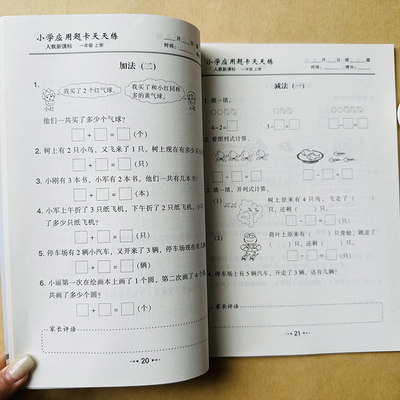 小学应用题卡天天练
人教新课标 一年级 上册
月 日
时间:
加法（二）
1.
我买了2个红气球。
我买了和小红同样多的黄气球。
他们一共买了多少个气球？
□+□=□(个)
2. 树上有2只小鸟，又飞来了1只。树上现在有多
□+□=□(只)
3. 小刚有3本书，小军有2本书。他们一共有几本书？
□+□=□(本)
4. 小军上午折了3只纸飞机，下午折了2只纸飞机。
了多少只纸飞机？
□+□=□(只)
5. 停车场有2辆小汽车，又开来了3辆，停车场现在
□+□=□(辆)
6. 小丽第一次在绘画本上画了1个圆，第二次画了4个
共画了多少个圆？
□+□=□(个)
家长评语
20
小学应用题卡天天练
人教新课标 一年级 上册
月 日
时间: 得分:
减法（一）
1. 填一填。
4-2=□
3-□=□
2. 看图列式计算。
□-□=□
□-□=□
3. 填一填，并列式计算。
树上原来有4只鸟，飞走了( )
只，还剩( )只。
□-□=□(只)
荷叶上原来有( )只青蛙，跳走了
( )只，还剩( )只。
□-□=□(只)
4. 停车场上有5辆汽车，开走了3辆，还有几辆？
家长评语
21